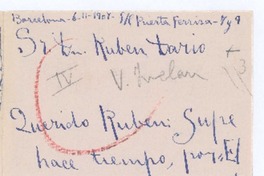 Barcelona-6-11-1907. S/C Puerta Ferrisa-7 y 9
Sr Dn. Ruben Dario
+
3
IV
Querido Ruben: Supe
hace tiempo, por El